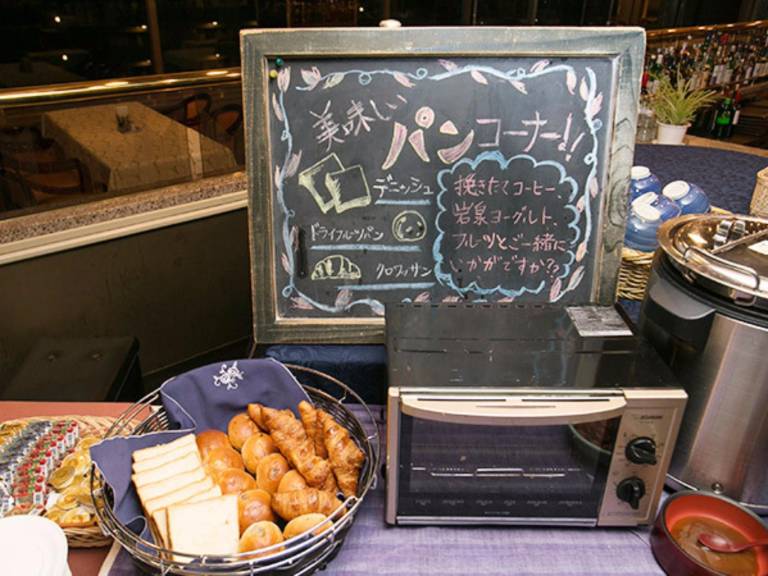 美味しいパンコーナー!!
デニッシュ
ドライフルーツパン
クロワッサン
挽きたてコーヒー、
岩泉ヨーグルト、
フルーツとご一緒に
いかがですか??